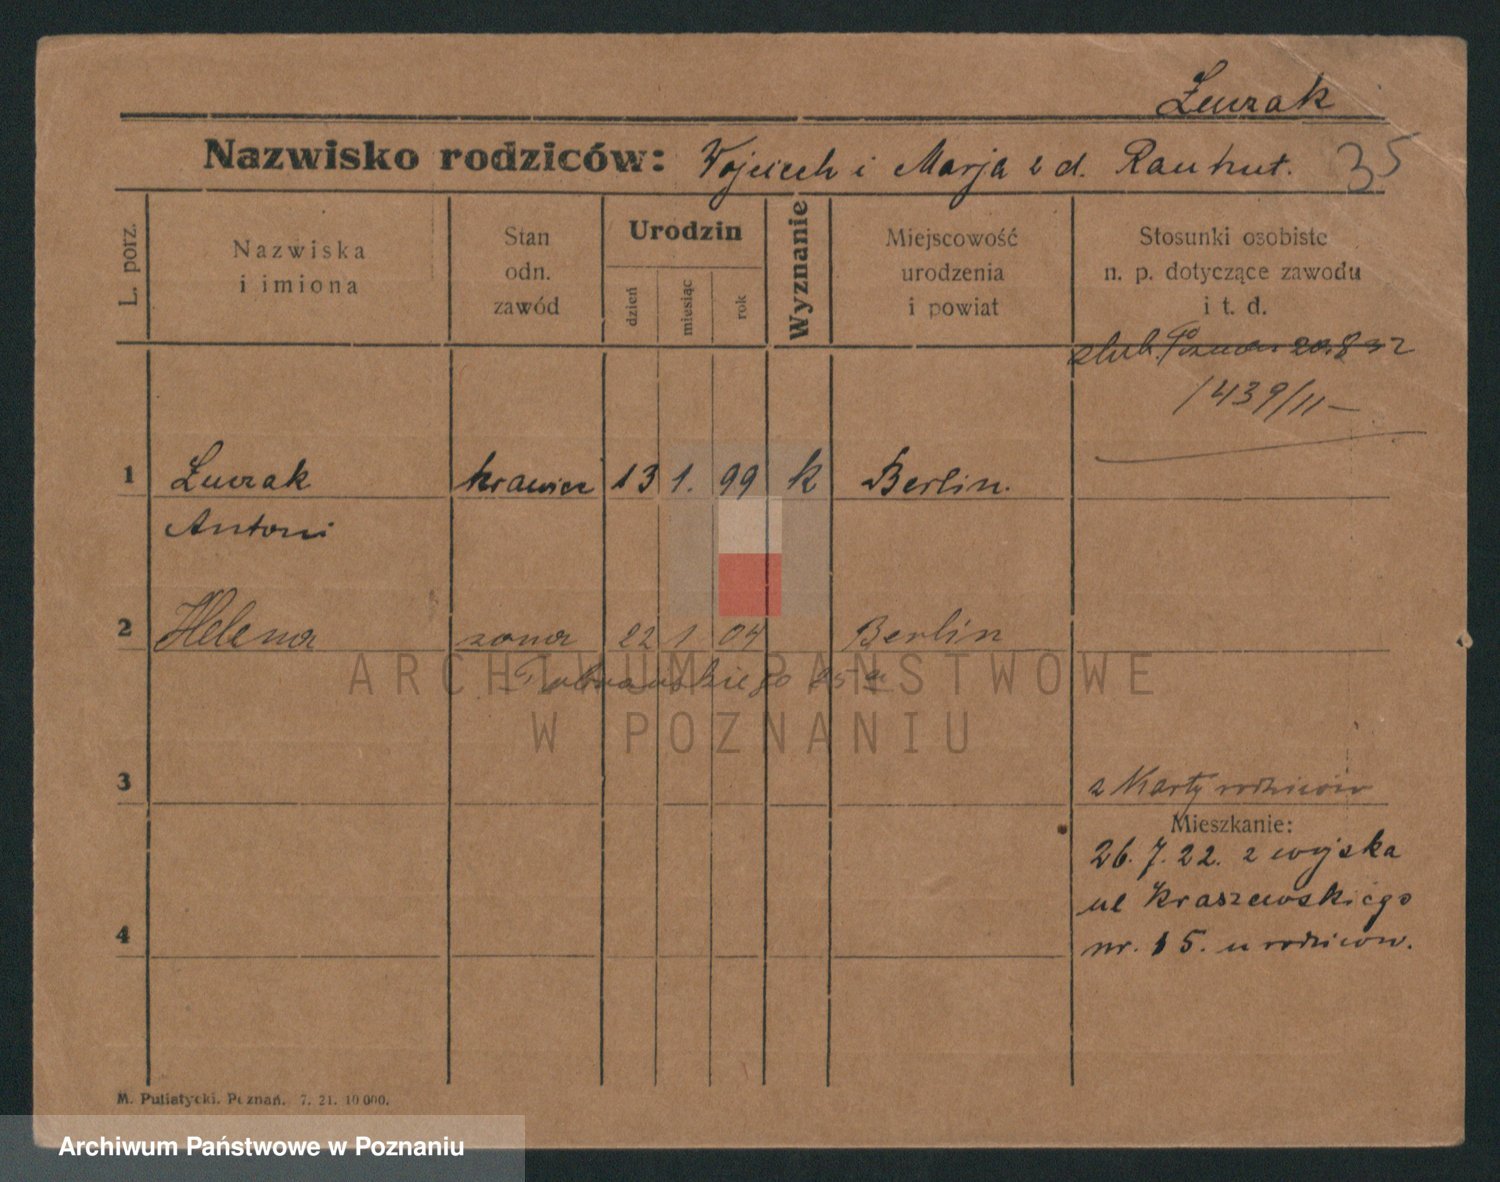 Żurzak
Nazwisko rodziców: Wojciech i Marja z d. Rauhut. 35
L. porz.
Nazwiska
i imiona
Stan
odn.
zawód
Urodzin
dzień
miesiąc
rok
Wyznanie
Miejscowość
urodzenia
i powiat
Stosunki osobiste
n. p. dotyczące zawodu
i t. d.
ślub. Poznań 20.8 32
1439/II
1 Żurzak krawiec 13 1. 99 k Berlin.
Antoni
2 Helena żona 22 1 04 Berlin
3
z Karty rodziców
Mieszkanie:
26. 7. 22. z wojska
ul Kraszewskiego
nr. 15. u rodziców.
4
M. Putiatycki. Poznań. 7. 21. 10 000.
ARCHIWUM PAŃSTWOWE
W POZNANIU
Archiwum Państwowe w Poznaniu